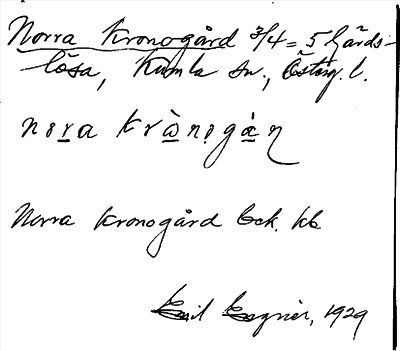 Norra Kronogård 3/4 = 5 Gärds-
lösa, Kumla sn., Österg. l.
nọra krò̱nọgá̱ɳ
Norra Kronogård Eck. kb
Emil Eegnér, 1929